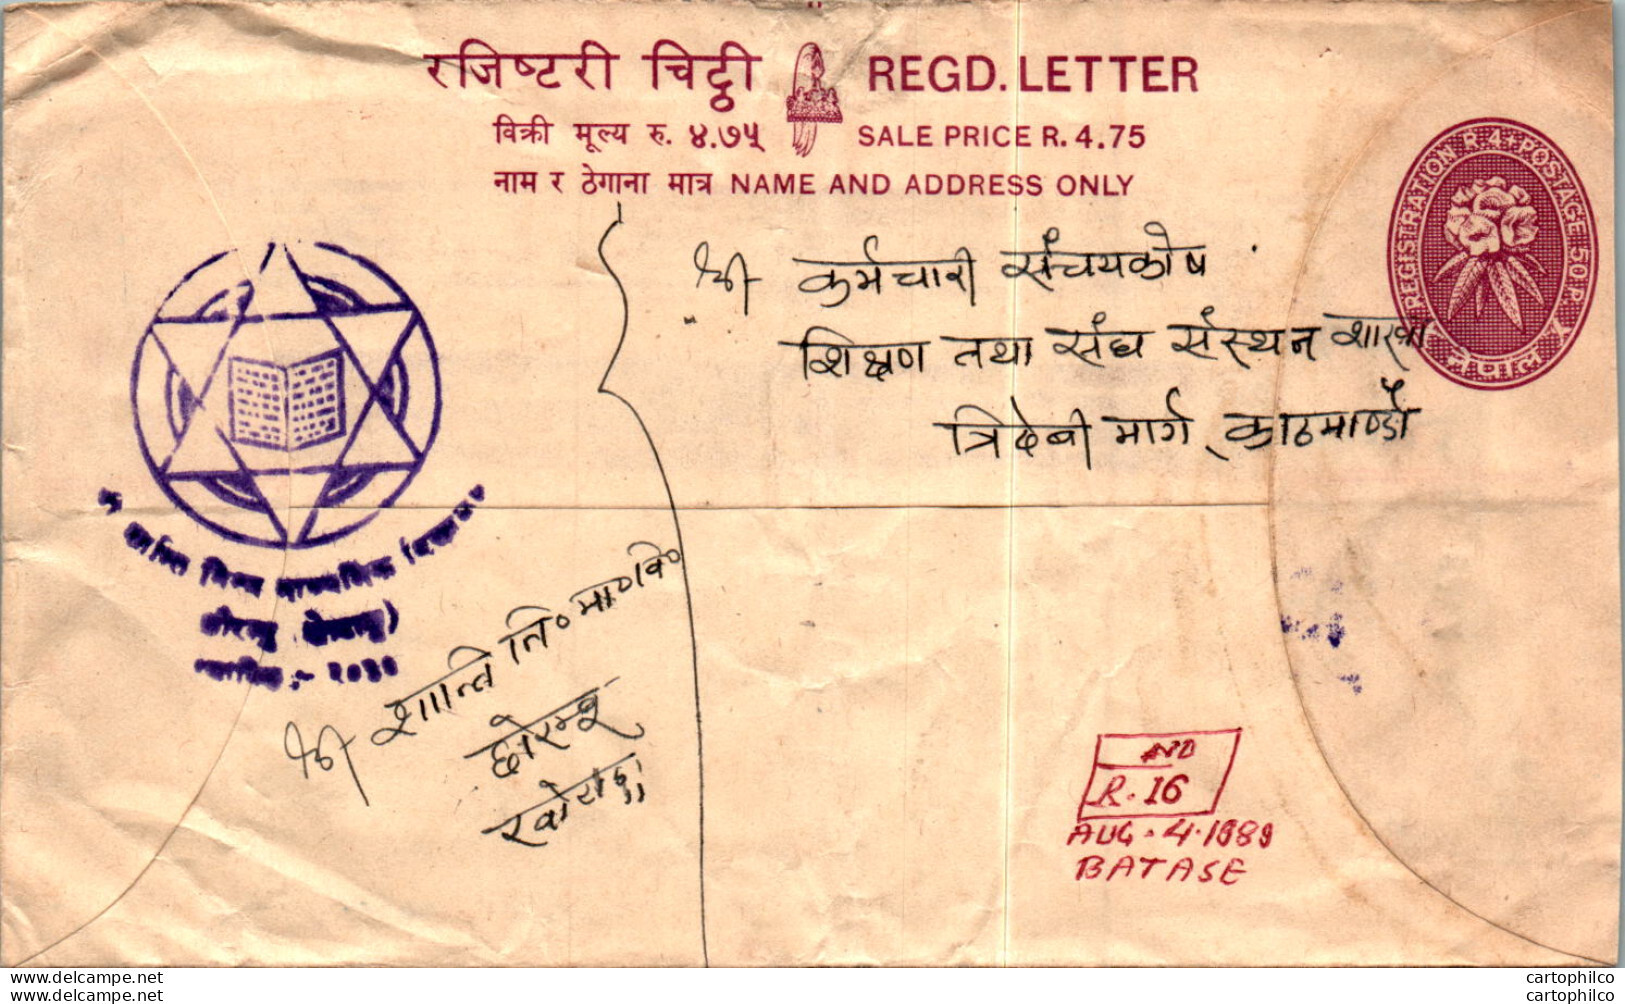 रजिष्टरी चिट्ठी REGD. LETTER
विक्री मूल्य रु. ४.७५ SALE PRICE R. 4.75
नाम र ठेगाना मात्र NAME AND ADDRESS ONLY
REGISTRATION R. 4. POSTAGE 50 P.
नेपाल
श्री कर्मचारी संचयकोष
शिक्षण तथा संघ संस्थन शाखा
त्रिदेबी मार्ग, काठमाण्डौ
शान्ति निम्न माध्यमिक
२०३०
श्री शान्ति नि० मा० वि०
खोटाङ्ग
R. 16
AUG. 4. 1989
BATASE
www.delcampe.net
www.delcampe.net
cartophilco
cartophilco